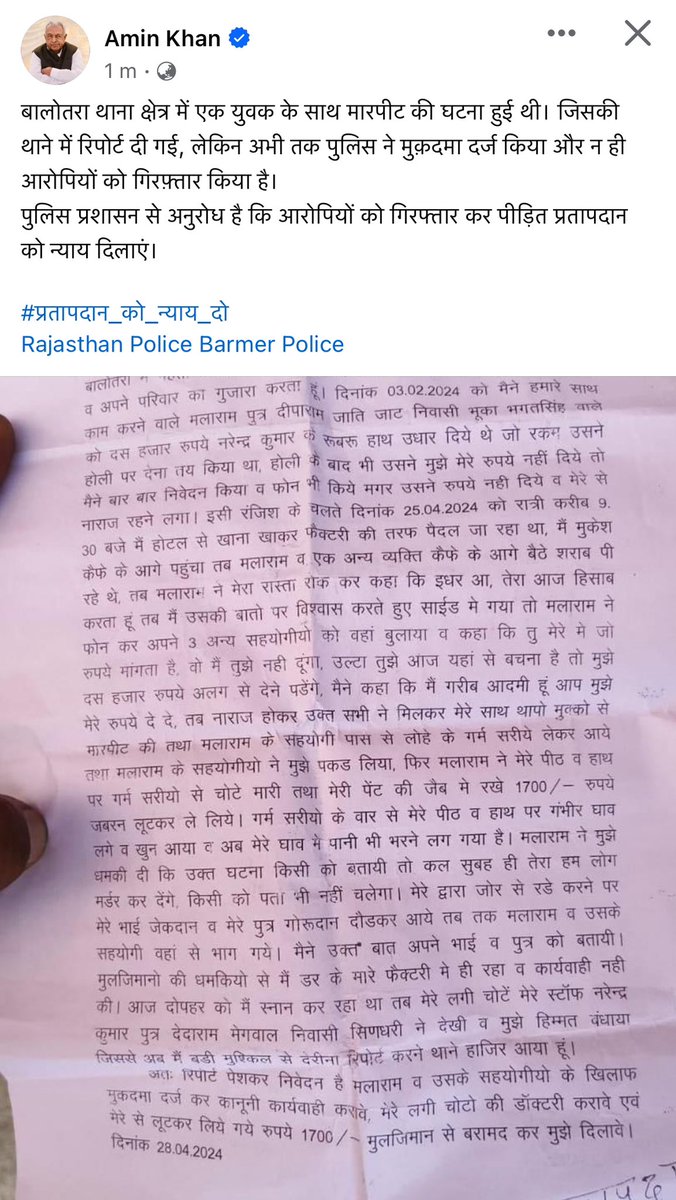 Amin Khan
1 m
बालोतरा थाना क्षेत्र में एक युवक के साथ मारपीट की घटना हुई थी। जिसकी
थाने में रिपोर्ट दी गई, लेकिन अभी तक पुलिस ने मुक़दमा दर्ज किया और न ही
आरोपियों को गिरफ़्तार किया है।
पुलिस प्रशासन से अनुरोध है कि आरोपियों को गिरफ्तार कर पीड़ित प्रतापदान
को न्याय दिलाएं।
#प्रतापदान_को_न्याय_दो
Rajasthan Police Barmer Police
बालोतरा
व अपने परिवार का गुजारा करता हूं। दिनांक 03.02.2024 को मैने हमारे साथ
काम करने वाले मलाराम पुत्र दीपाराम जाति जाट निवासी भूका भगतसिंह वाले
को दस हजार रुपये नरेन्द्र कुमार के रूबरू हाथ उधार दिये थे जो रकम उसने
होली पर देना तय किया था, होली के बाद भी उसने मुझे मेरे रुपये नहीं दिये तो
मैने बार बार निवेदन किया व फोन भी किये मगर उसने रुपये नही दिये व मेरे से
नाराज रहने लगा। इसी रंजिश के चलते दिनांक 25.04.2024 को रात्री करीब 9.
30 बजे मैं होटल से खाना खाकर फैक्टरी की तरफ पैदल जा रहा था, मैं मुकेश
कैफे के आगे पहुंचा तब मलाराम व एक अन्य व्यक्ति कैफे के आगे बैठे शराब पी
रहे थे, तब मलाराम ने मेरा रास्ता रोक कर कहा कि इधर आ, तेरा आज हिसाब
करता हूं तब मैं उसकी बातो पर विश्वास करते हुए साईड मे गया तो मलाराम ने
फोन कर अपने 3 अन्य सहयोगीयो को वहां बुलाया व कहा कि तु मेरे मे जो
रुपये मांगता है, वो मैं तुझे नही दूंगा, उल्टा तुझे आज यहां से बचना है तो मुझे
दस हजार रुपये अलग से देने पडेंगे, मैने कहा कि मैं गरीब आदमी हूं आप मुझे
मेरे रुपये दे दे, तब नाराज होकर उक्त सभी ने मिलकर मेरे साथ थापो मुक्को से
मारपीट की तथा मलाराम के सहयोगी पास से लोहे के गर्म सरीये लेकर आये
तथा मलाराम के सहयोगीयो ने मुझे पकड लिया, फिर मलाराम ने मेरे पीठ व हाथ
पर गर्म सरीयो से चोटे मारी तथा मेरी पेंट की जैब मे रखे 1700/- रुपये
जबरन लूटकर ले लिये। गर्म सरीयो के वार से मेरे पीठ व हाथ पर गंभीर घाव
लगे व खुन आया व अब मेरे घाव मे पानी भी भरने लग गया है। मलाराम ने मुझे
धमकी दी कि उक्त घटना किसी को बतायी तो कल सुबह ही तेरा हम लोग
मर्डर कर देंगे, किसी को पता भी नहीं चलेगा। मेरे द्वारा जोर से रडे करने पर
मेरे भाई जेकदान व मेरे पुत्र गोरूदान दौडकर आये तब तक मलाराम व उसके
सहयोगी वहां से भाग गये। मैने उक्त बात अपने भाई व पुत्र को बतायी।
मुलजिमानो की धमकियो से मैं डर के मारे फैक्टरी मे ही रहा व कार्यवाही नही
की। आज दोपहर को मैं स्नान कर रहा था तब मेरे लगी चोटें मेरे स्टॉफ नरेन्द्र
कुमार पुत्र देदाराम मेगवाल निवासी सिणधरी ने देखी व मुझे हिम्मत बंधाया
जिससे अब मैं बडी मुश्किल से देरीना रिपोर्ट करने थाने हाजिर आया हूं।
अतः रिपोर्ट पेशकर निवेदन है मलाराम व उसके सहयोगीयो के खिलाफ
मुकदमा दर्ज कर कानूनी कार्यवाही करावे, मेरे लगी चोटो की डॉक्टरी करावे एवं
मेरे से लूटकर लिये गये रुपये 1700/- मुलजिमान से बरामद कर मुझे दिलावे।
दिनांक 28.04.2024